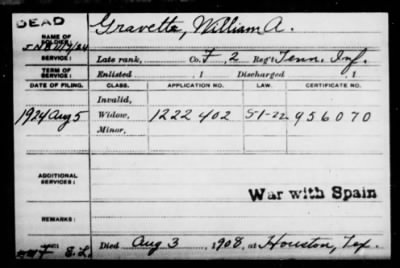 DEAD
NAME OF SOLDIER: Gravette, William A.
SERVICE: Late rank, Co. F 2 Reg't Tenn. Inf.
TERM OF SERVICE: Enlisted , 1 Discharged , 1
DATE OF FILING. CLASS. APPLICATION NO. LAW. CERTIFICATE NO.
Invalid,
1924 Aug 5 Widow, 1222 402 S1-22 956070
Minor,
ADDITIONAL SERVICES:
War with Spain
REMARKS:
Died Aug 3, 1908, at Houston, Tex.